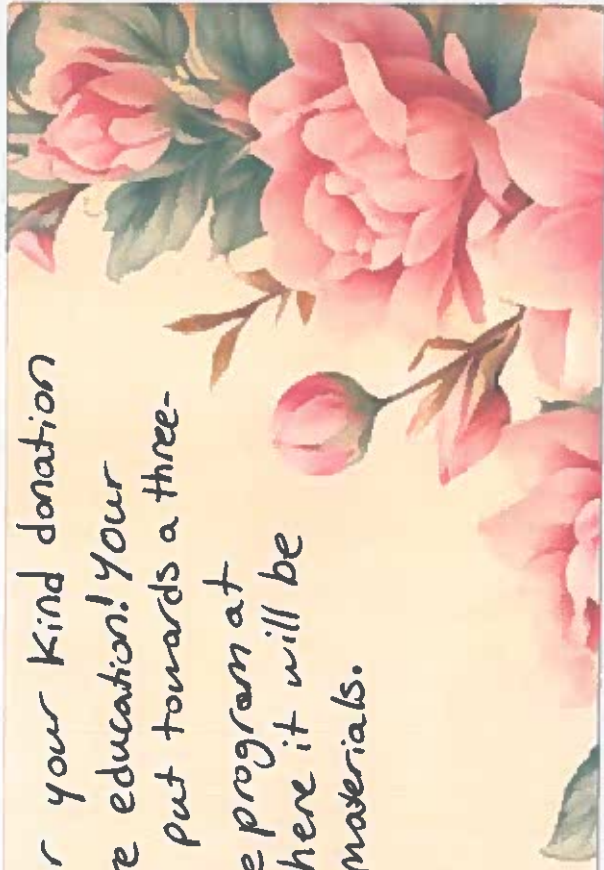 r your kind donation
e education! Your
put towards a three-
e program at
here it will be
materials.